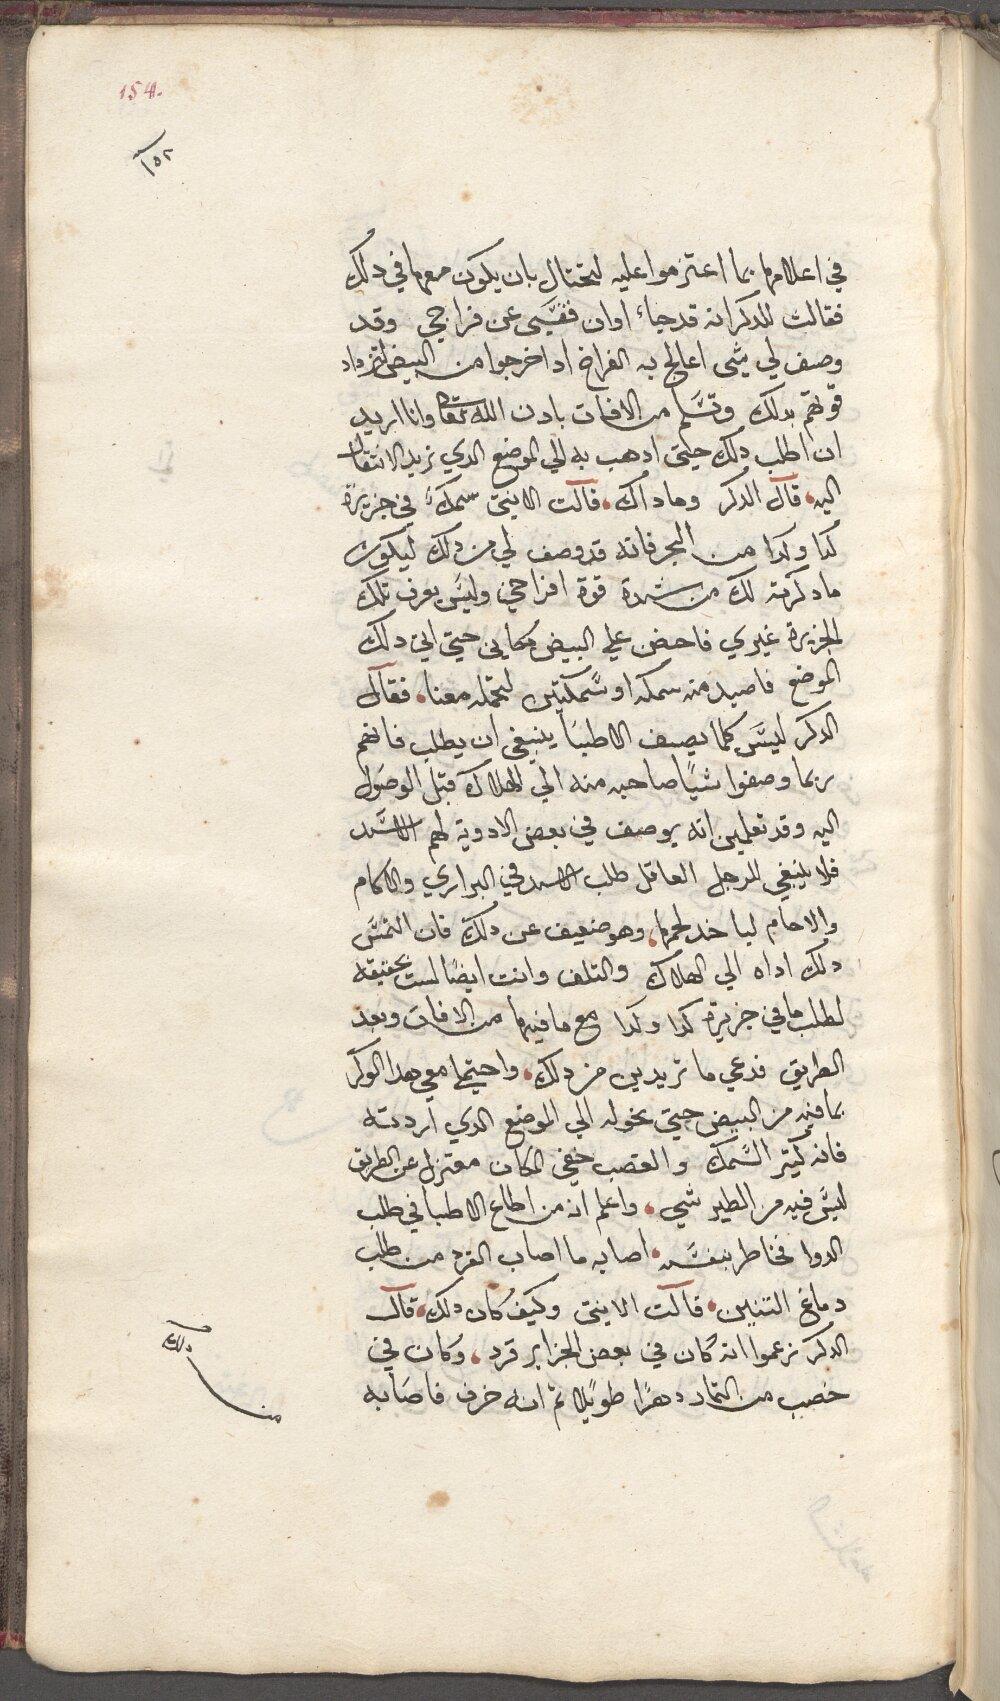 154.
١٥٢
في اعلامها بما اعتزموا عليه لتحتال بان يكون معها في دلك
فقالت للدكر انه قد جاء اوان تفقيس عن فراخي وقد
وصف لي شي اعالج به الفراخ ادا خرجوا من البيض لتزداد
قوتهم بدلك وتسلم من الافات بادن الله تعالى وانا اريد
ان اطلب دلك حتى ادهب به الي الموضع الدي نريد الانتقال
اليه قال الدكر وما داك قالت الانتى سمكة في جزيرة
كدا وكدا من البحر فانه قد وصف لي من دلك ليكون
ما دكرته لك من شدة قوة افراخي وليس يعرف تلك
الجزيرة غيري فاحضن علي البيض مكاني حتي اتي دلك
الموضع فاصيد منه سمكه او سمكتين لنحمله معنا فقال
الدكر ليس كلما يصف الاطبا ينبغي ان يطلب فانهم
ربما وصفوا شيا صاحبه منه الي الهلاك قبل الوصول
اليه وقد تعلمين انه يوصف في بعض الادوية لحم الاسد
فلا ينبغي للرجل العاقل طلب الاسد في البراري والاكام
والاجام ليا خد لحمها وهو ضعيف عن دلك فان التمس
دلك اداه الي الهلاك والتلف وانت ايضا لست بحقيقه
لطلب ما في جزيرة كدا وكدا مع ما فيها من الافات وبعد
الطريق فدعي ما تريدين من دلك واحتملي معي هدا الوكر
بما فيه من البيض حتي نحوله الي الموضع الدي اردته
فانه كتير السمك والقصب خفي المكان معتزل عن الطريق
ليس فيه من الطير شي واعلم انه من اطاع الاطبا في طلب
الدوا فخاطر بنفسه اصابه ما اصاب القرد من طلب
دماغ التنين قالت الانتى وكيف كان دلك قال
الدكر زعموا انه كان في بعض الجزاير قرد وكان في
خصب من التمار دهرا طويلا تم انه خرف فاصابه
دلك
من